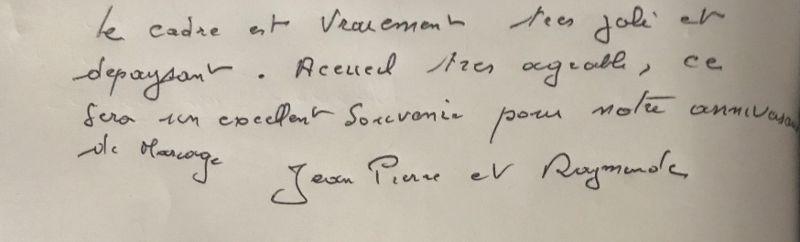 Le cadre est vraiement très joli et
depaysant. Accueil très agréable, ce
sera un excellent souvenir pour notre anniversaire
de Mariage
Jean Pierre et Raymonde